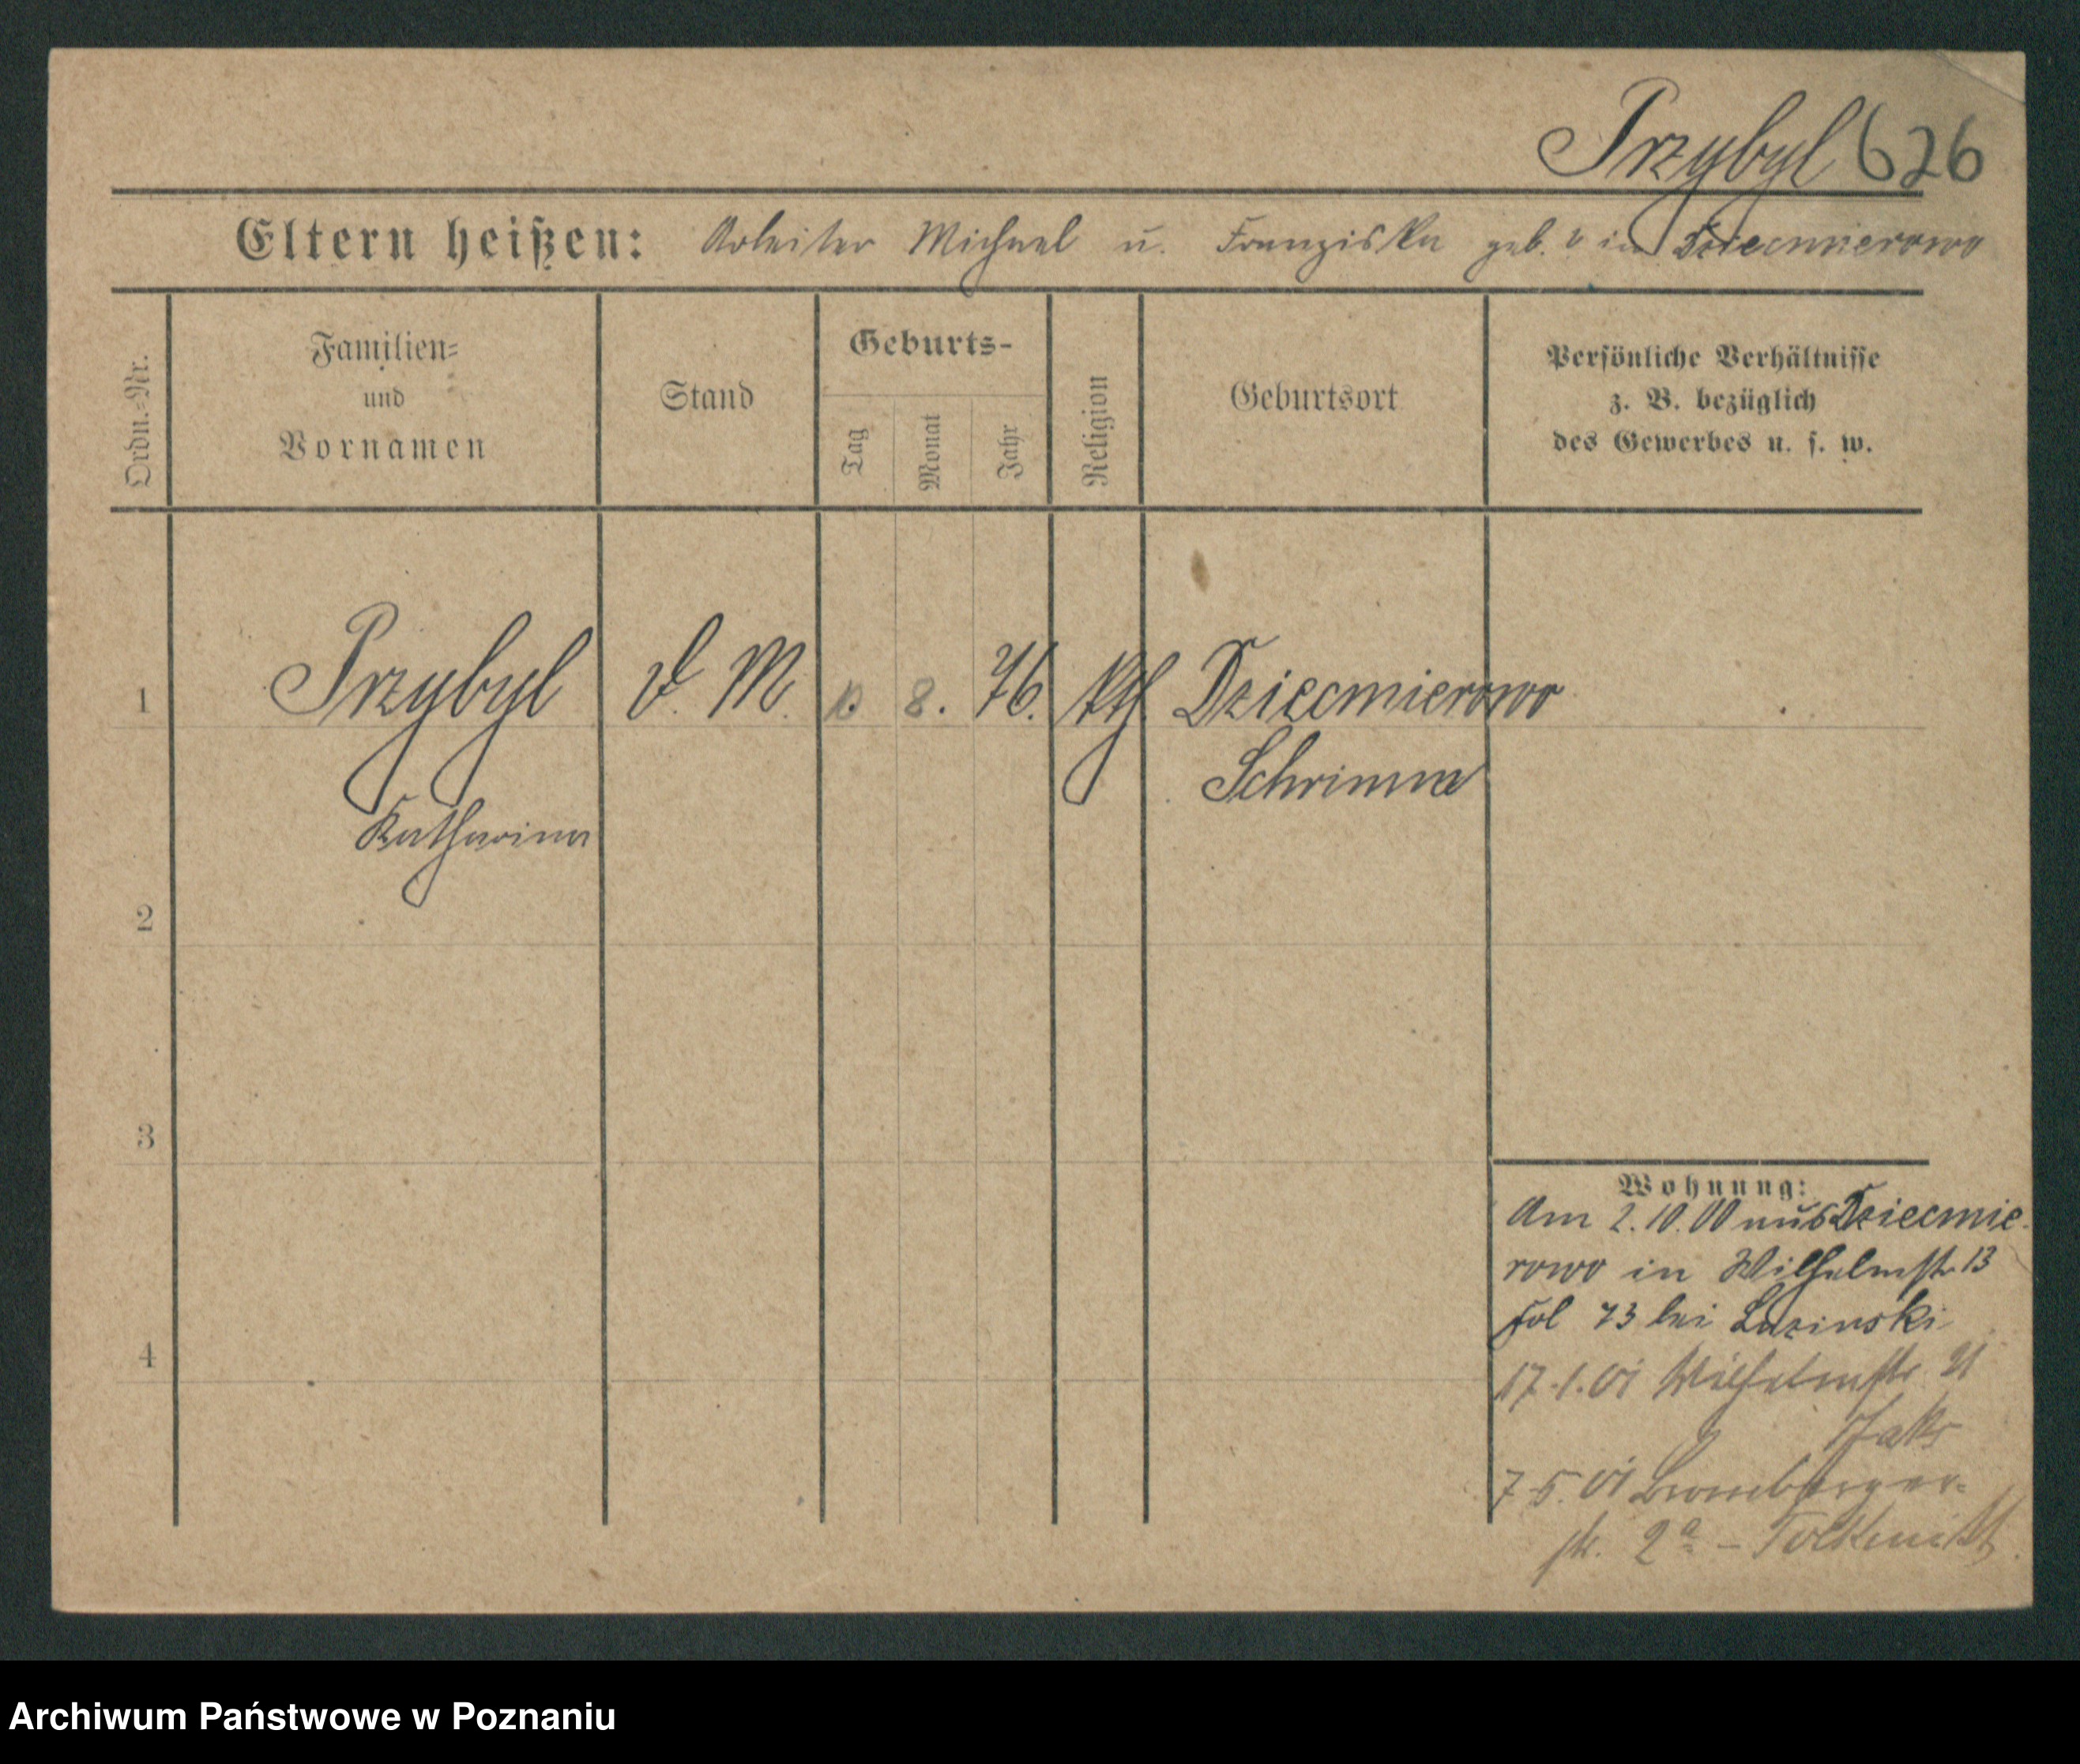 Przybyl 626
Eltern heißen: Arbeiter Michael u. Franziska geb. ? in Dziecmierowo
Ordn.-Nr.
Familien-
und
Vornamen
Stand
Geburts-
Tag
Monat
Jahr
Religion
Geburtsort
Persönliche Verhältnisse
z. B. bezüglich
des Gewerbes u. s. w.
1 Przybyl d. M. 8. 76. kth Dziecmierowo
Schrimm
Katharina
2
3
4
Wohnung:
Am 2.10.00 aus Dziecmie-
rowo in Wilhelmstr. 13
Fol 73 bei Lazinski
17.1.01 Wilhelmstr. 21
7.5.01 Bromberger-
str. 2a - Tolkmitt.
Archiwum Państwowe w Poznaniu